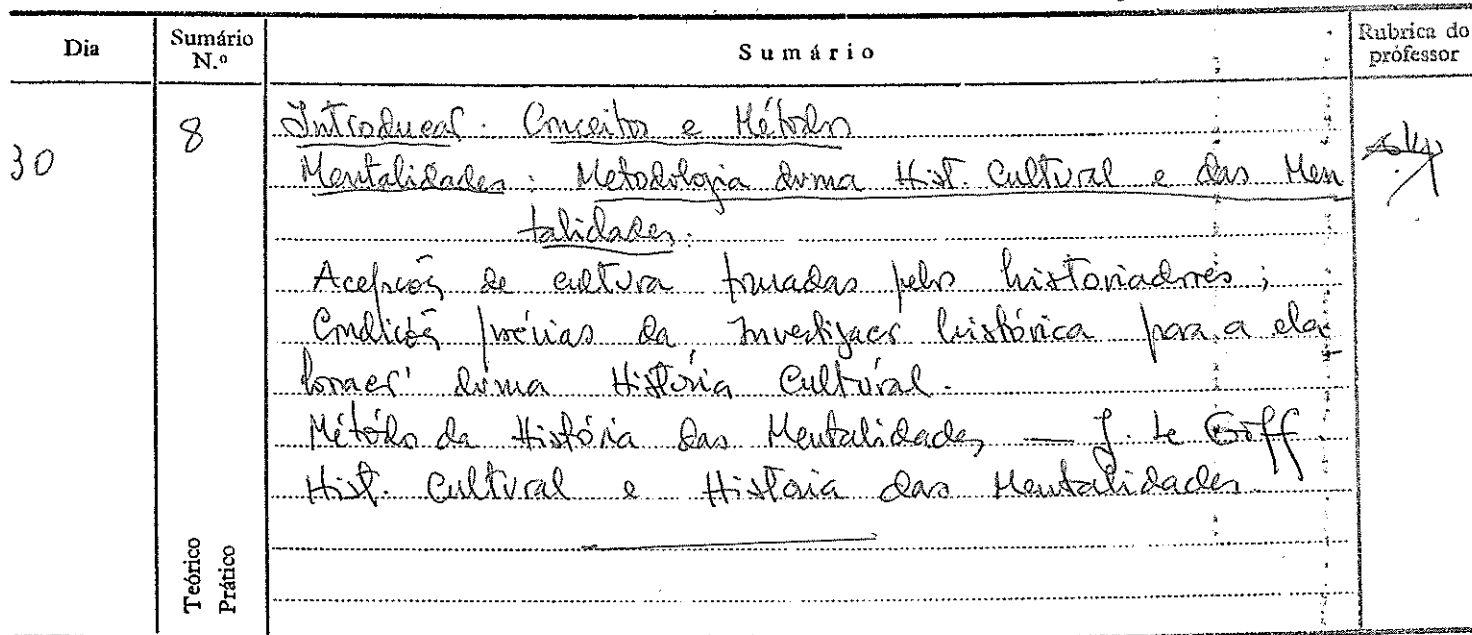 Dia
Sumário N.º
Sumário
Rubrica do professor
30
8
Introducão. Conceitos e Métodos
Mentalidades: Metodologia duma Hist. Cultural e das Men
talidades.
Acepções de cultura tomadas pelos historiadores;
Condições prévias da investigação histórica para a ela
boração duma História Cultural.
Método da História das Mentalidades — J. Le Goff
Hist. Cultural e História das Mentalidades
Teórico
Prático